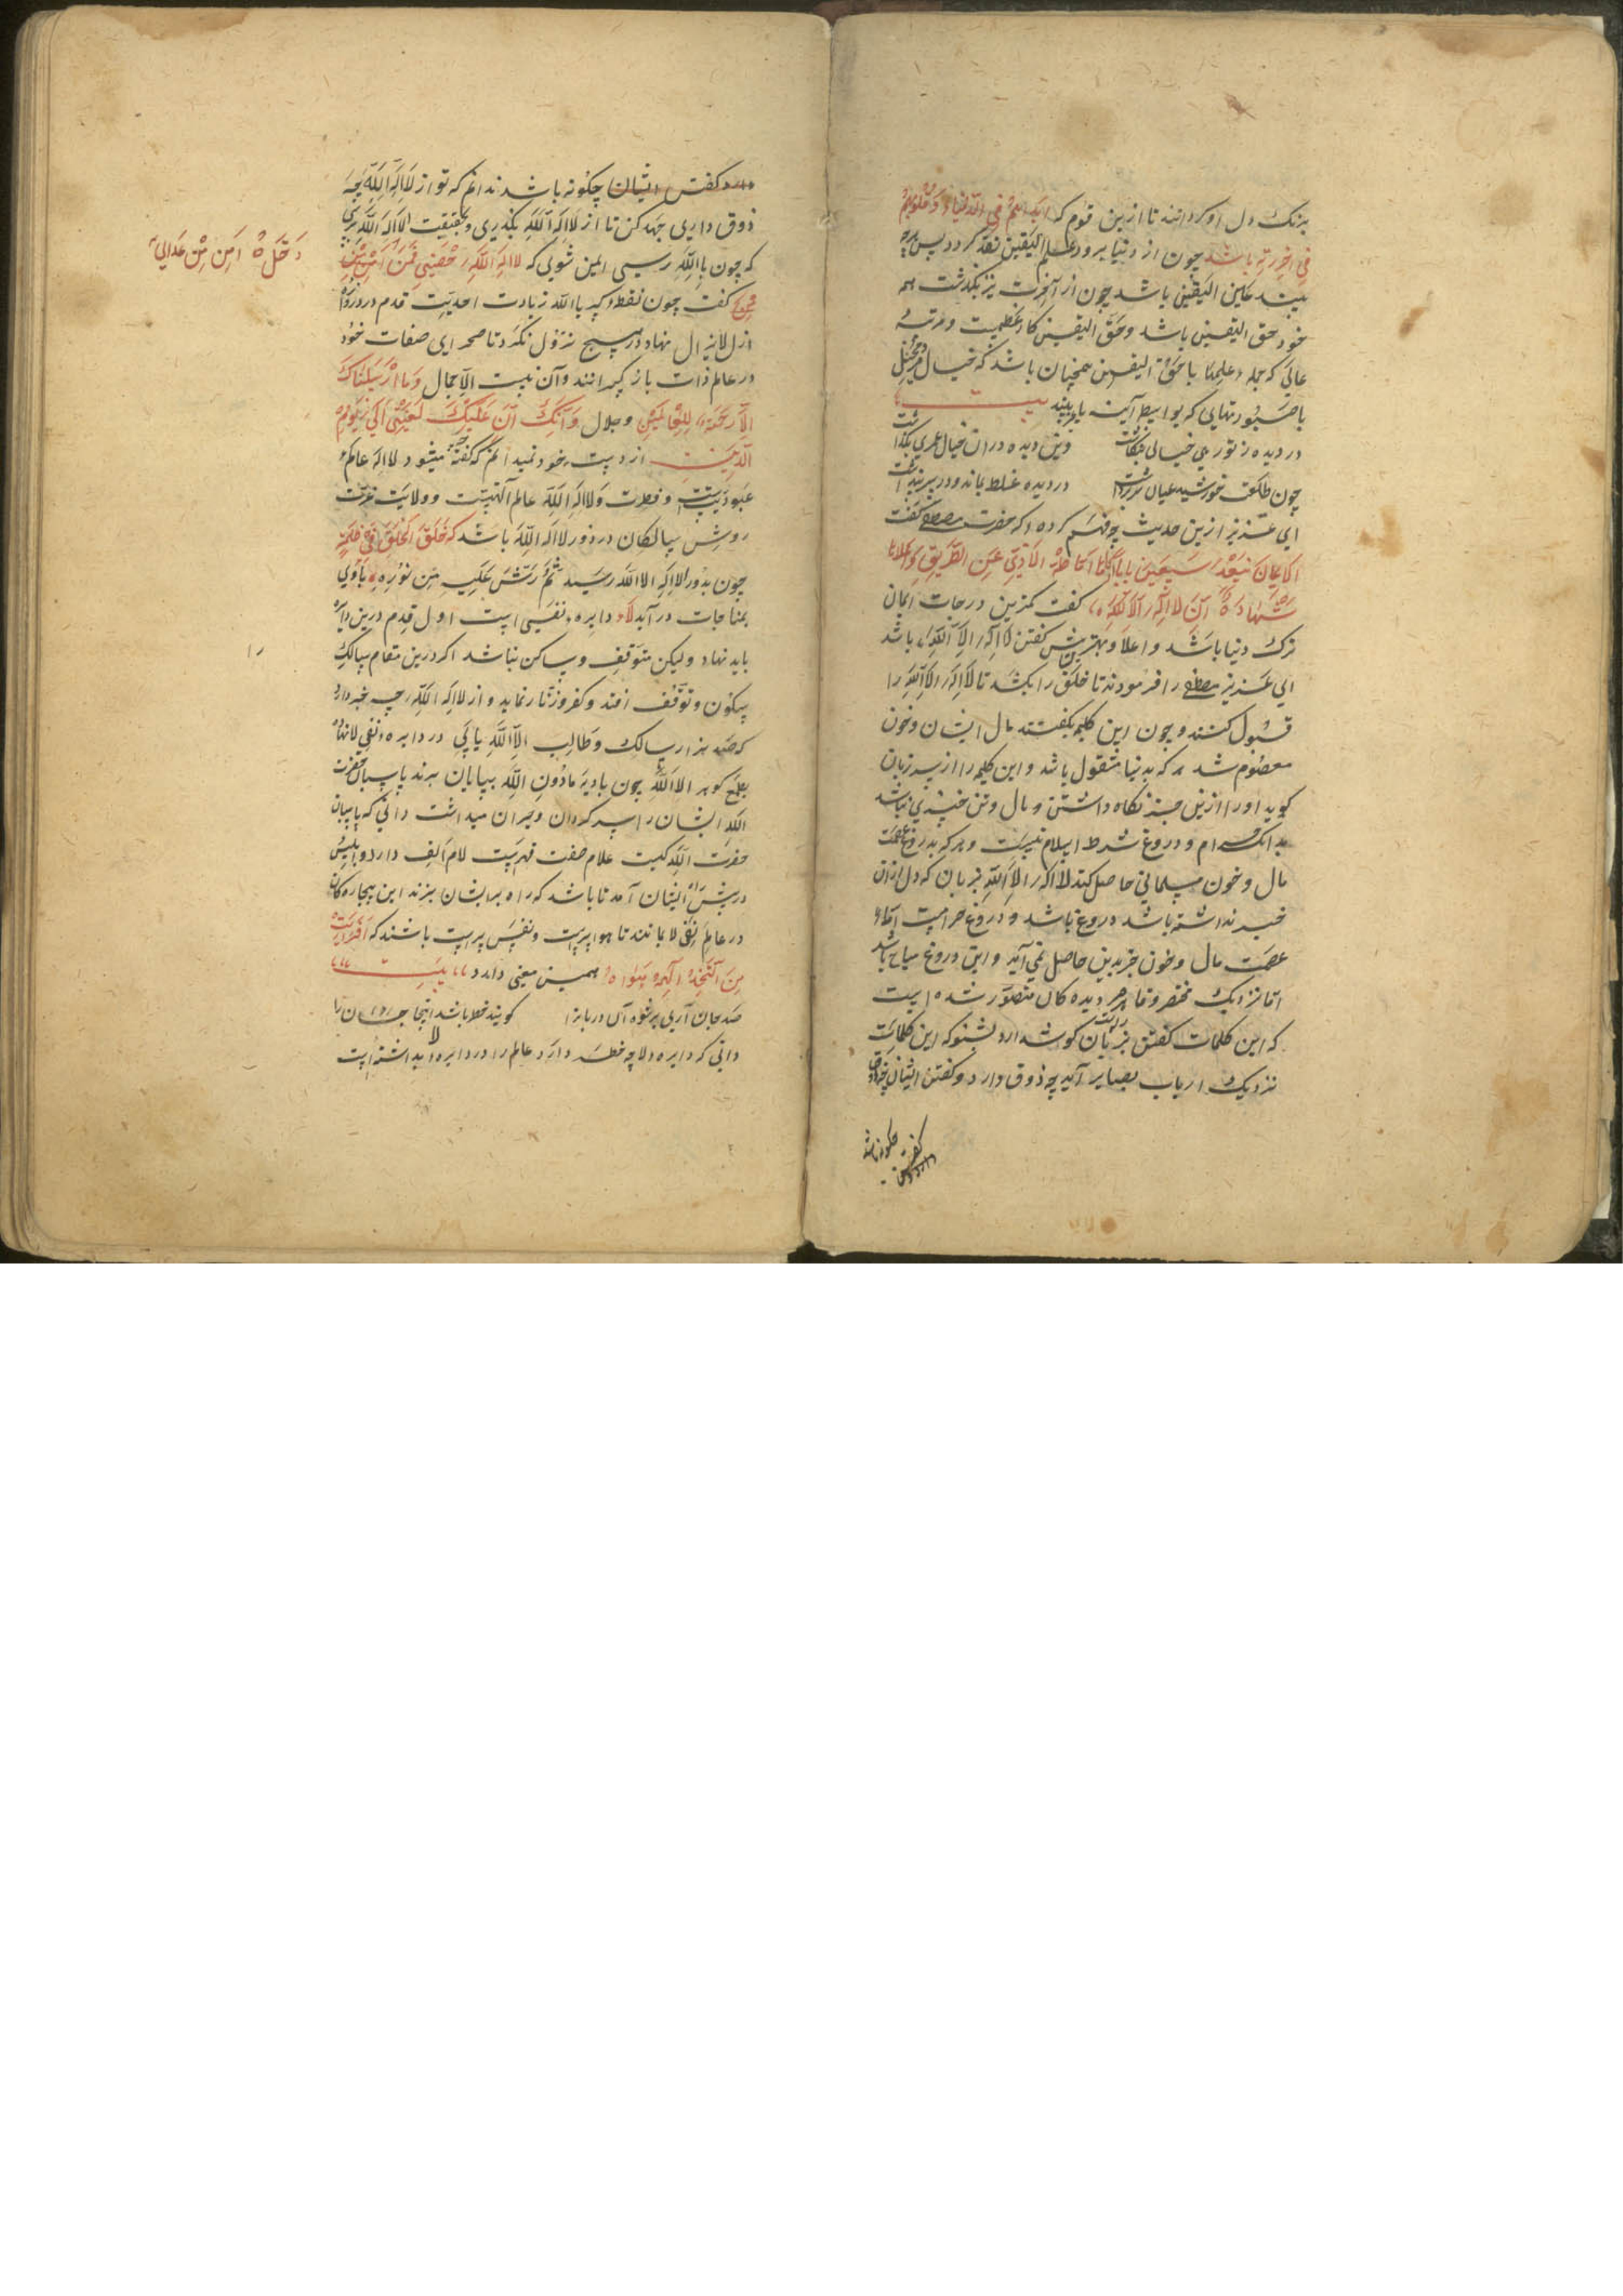 برنک دل او کرداننند تا ازین قوم که ابدانهم فی الدنیا وقلوبهم
فی اخرته باشد چون از دنیا برود علم الیقین نقد کردد پس هرچه
بیند عین الیقین باشد چون از آخرت نیز بگذشت همه
خود حق الیقین باشد وحق الیقین کار عظیمست ومرتبه
عالی که جمله علمها با حق الیقین همچنان باشد که خیال
با صورتهایی که بواسطه آینه باز بینند بیت
در دیده ز تو رهی خیالی بنکاشت وین دیده دران خیال عمری بکذاشت
چون طلعت خورشید عیان سر برداشت در دیده غلط بماند ودر سر پنداشت
ای عزیز ازین حدیث چه فهم کرده که حضرت مصطفی گفت
الایمان بضعة سبعین بابا ادناها اماطة الاذی عن الطریق واعلاها
شهادة ان لا اله الا الله گفت کمترین درجات ایمان
ترک دنیا باشد واعلا وبهترینش گفتن لا اله الا الله باشد
ای عزیز مصطفی را فرمودند تا خلق را بکشد تا لا اله الا الله را
قبول کنند و چون این کلمه بگفتند مال ایشان وخون
معصوم شد هر که بدنیا مشغول باشد و این کلمه را از سر زبان
گوید او را ازین جز نگاه داشتن مال وتن چیزی نباشد
بدانکه حرام و دروغ شرط اسلام نیست وهر که بدروغ عصمت
مال وخون مسلمانی حاصل کند لا اله الا الله بزبان که دل ازان
خبر نداشته باشد دروغ باشد و دروغ حرامست اما
عصمت مال وخون جز بدین حاصل نمی آید و این دروغ مباح باشد
اما نزدیک مختصر دیده کان متصور شده است
که این کلمات گفتن بزبان راست بشنو که این کلمات
نزدیک ارباب بصایر آید چه ذوق دارد وگفتن ایشان
دارد گفتن ایشان چگونه باشد ندانم که تو از لا اله الا الله چه
ذوق داری جهد کن تا از لا اله الا الله بگذری وبحقیقت الا الله رسی
که چون با الله رسی ایمن شوی که لا اله الا الله حصنی فمن
دخله امن من عذابی
گفت چون نقطه کبریا الله ز ذات احدیت قدم در دوره
ازل لایزال نهاد بر هیچ نزول نکرد تا صحرای صفات خود
در عالم ذات باز گستراند وآن نیست الا جمال وما ارسلناک
الا رحمة للعالمین وجلال وانک ان علیک لعنتی الی یوم
الدین از دست خود نمیدانم که گفته میشود لا اله عالم
عبودیتست وفطرت والا الله عالم الهیت وولایت عزت
روش سالکان در دور لا اله الا الله باشد که خلق الخلق فی ظلمة
چون بدور الا الله رسید ثم رش علیهم من نوره
بمناجات درآید لا دایره نفی است اول قدم درین دایره
باید نهاد ولیکن متوقف وساکن نباشد اگر درین مقام سالک
سکون وتوقف افتد کفر وزنار نماید و از لا اله الا الله چه خبر دارد
که صد هزار سالک وطالب الا الله یابی در دایره نفی لا نهاد
بطمع گوهر الا الله چون بادیه مادون الله بپایان برند پاسبان حضرت
الله ایشان را سرگردان وحیران میداشت دانی که پاسبان
حضرت الله کیست غلام صفت قهرست لام الف دارد وابلیس
در پیش راه ایشان آمد تا باشد که راه بدیشان بزند این بیچارگان
در عالم نفی لا بمانند تا هواپرست ونفس پرست باشند که افرأیت
من اتخذ الهه هواه همین معنی دارد بیت
صد جان آری برشوه آن دربانرا گویند خطا باشد اینجا جان را
دانی که دایره لا چه خطر دارد عالم را در دایره لا بداشته است